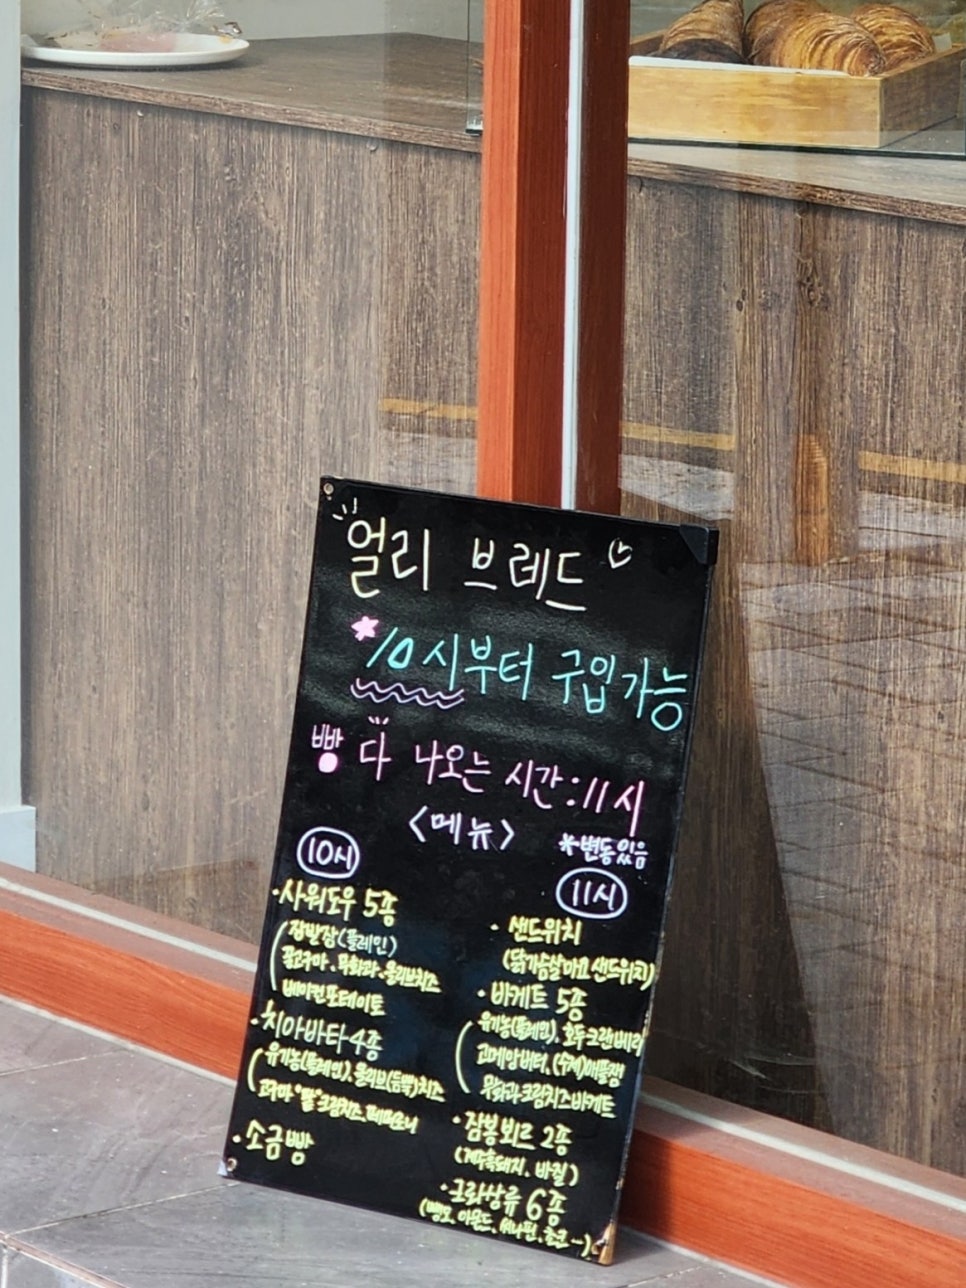 얼리 브레드
10시부터 구입가능
빵 다 나오는 시간:11시
<메뉴>
*변동있음
10시
·사워도우 5종
(잡반장(플레인)
꿀고구마, 무화과, 올리브치즈
베이컨포테이토
·치아바타 4종
(유기농(플레인), 올리브(듬뿍)치즈
고구마 "빵"크림치즈, 페퍼로니
·소금빵
11시
·샌드위치
(닭가슴살마요 샌드위치)
·바게트 5종
(유기농(플레인), 호두크랜베리
고메앙버터, (수제)애플잼
무화과크림치즈바게트
·잠봉뵈르 2종
(제주흑돼지, 바질)
·크롸상류 6종
(뺑오, 아몬드, 쇼콜 …)